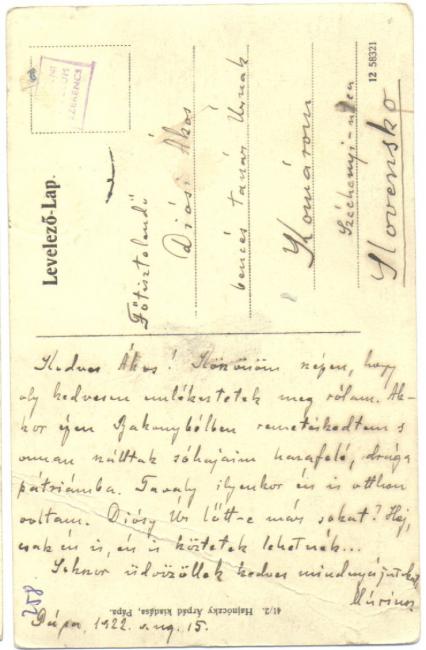 Levelező-Lap.
Főtisztelendő
Diósi Ákos
bencés tanár Urnak
Komárom
Széchenyi-utca
Slovensko
12 58321
Kedves Ákos! Köszönöm szépen, hogy
oly kedvesen emlékeztetek meg rólam. Ak-
kor épen Bakonybélben remetéskedtem s
onnan szálltak sóhajaim hazafelé, drága
pátriámba. Tavaly ilyenkor én is otthon
voltam. Diósy Úr lőtt-e már sokat? Hej,
csak én is, én is köztetek lehetnék...
Sokszor üdvözöllek kedves mindnyájatokat
Márinusz
Pápa, 1922. aug. 15.
41/2. Hajnóczky Árpád kiadása, Pápa.
258